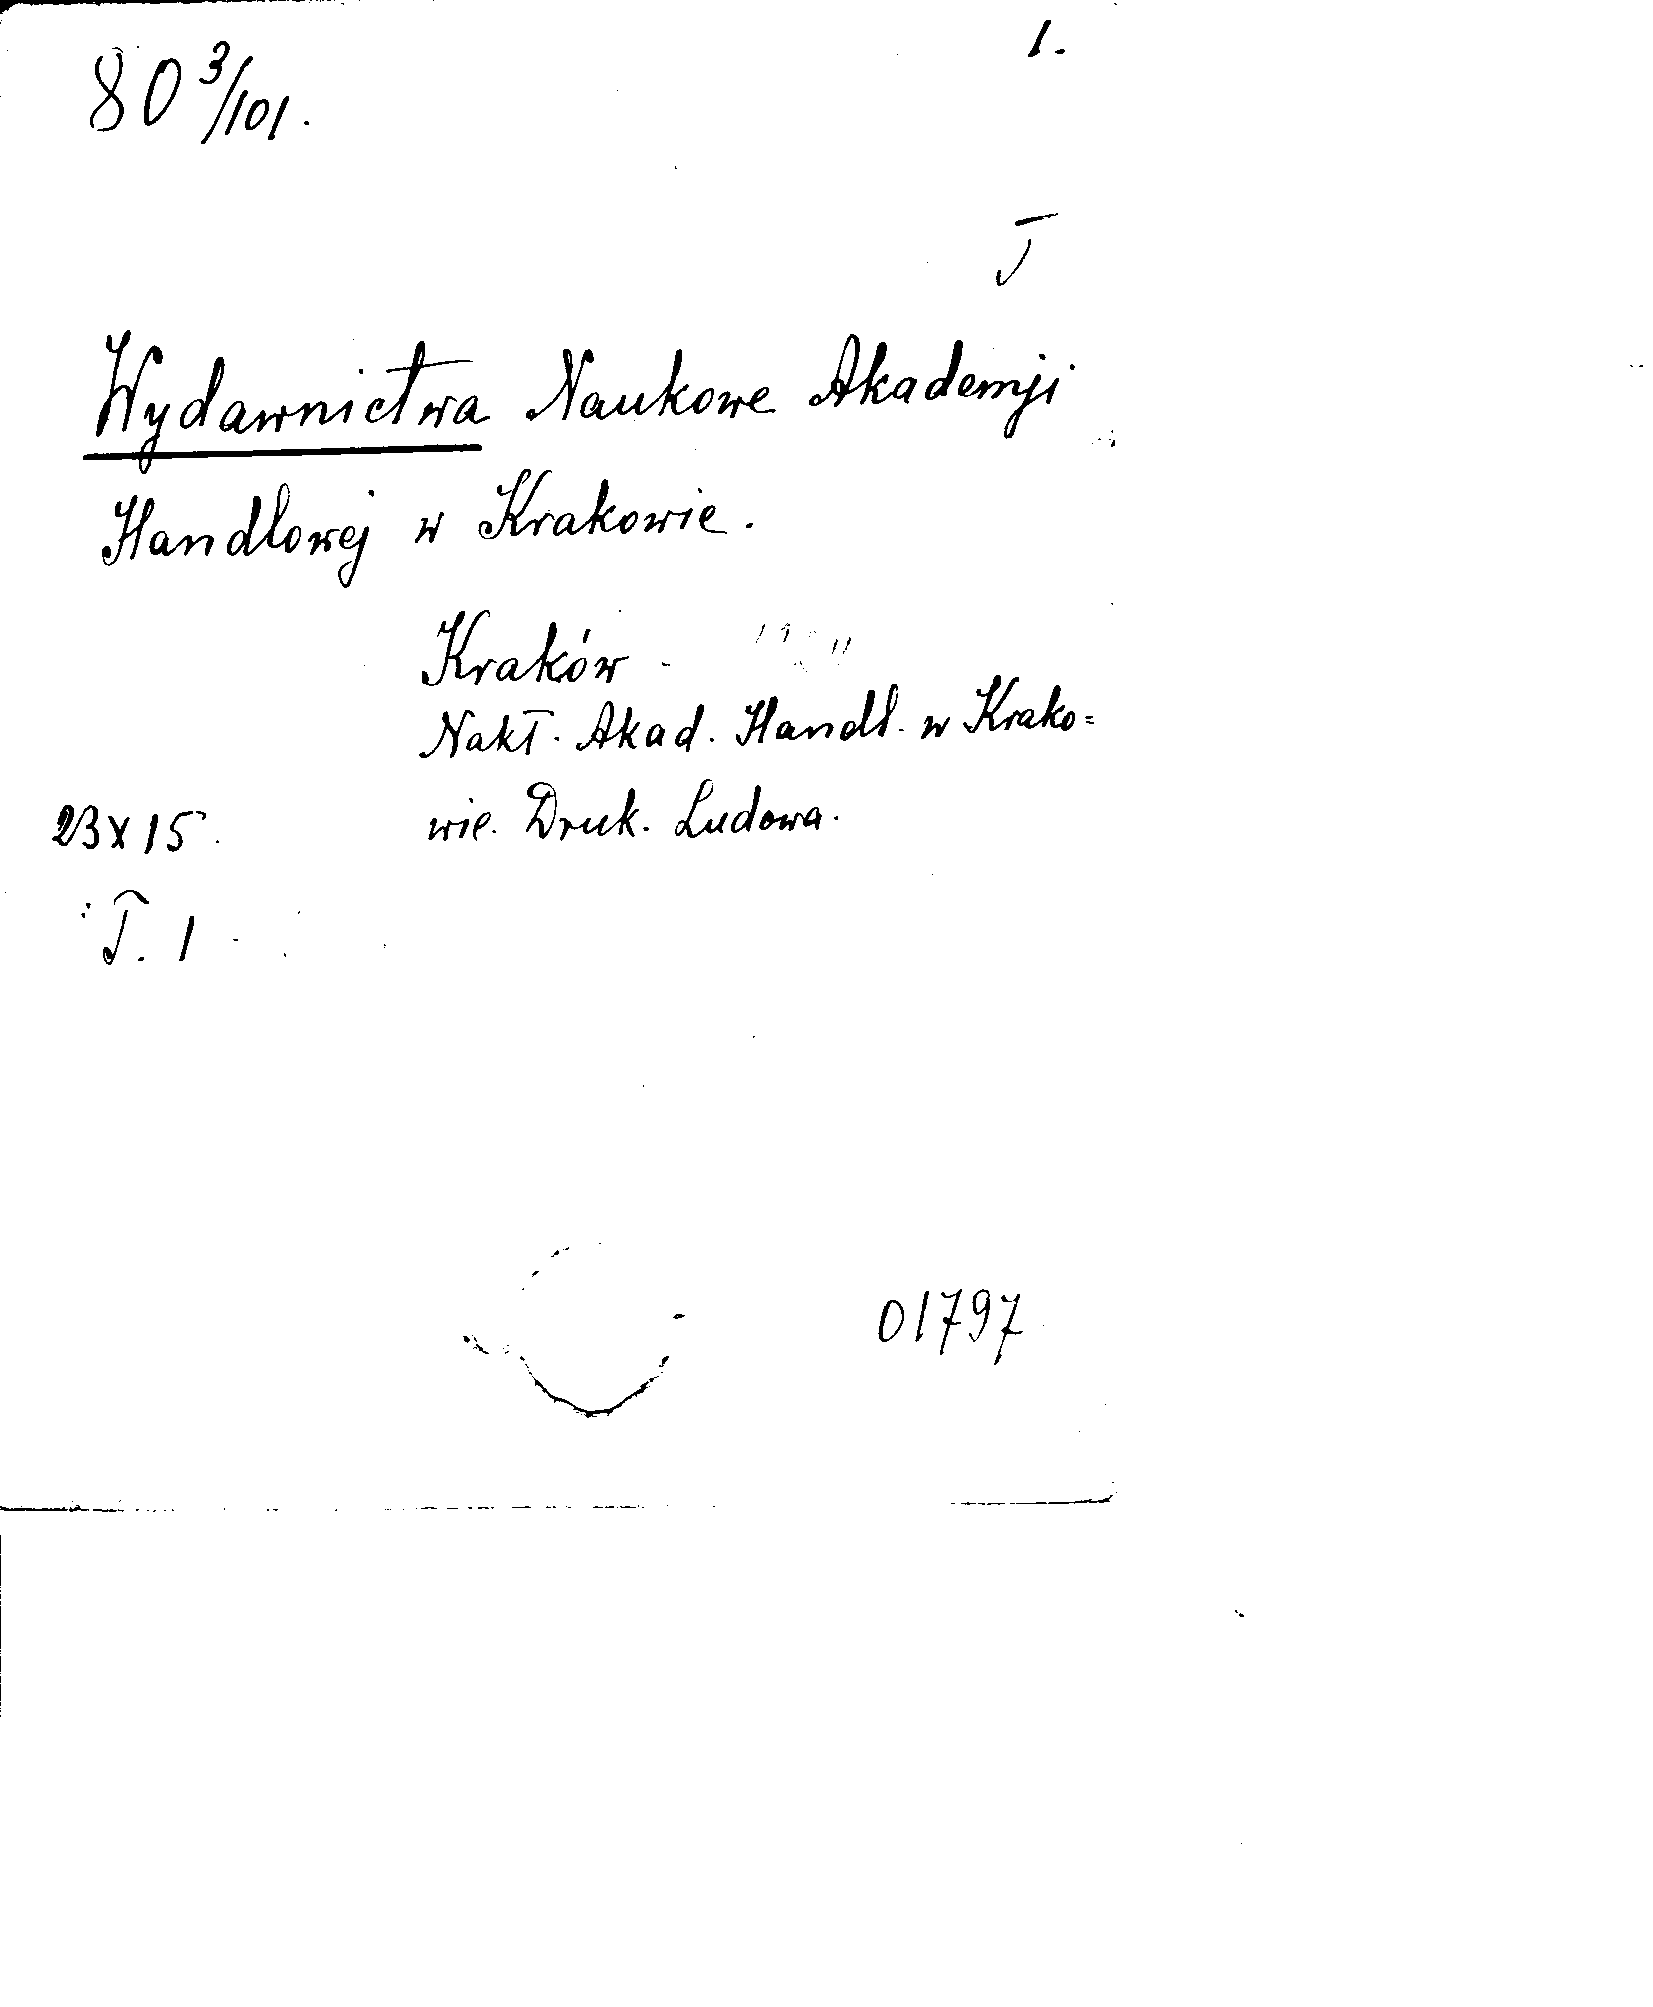 1.
80 3/101.
T
Wydawnictwa Naukowe Akademji
Handlowej w Krakowie.
Kraków
Nakł. Akad. Handl. w Krako=
wie. Druk. Ludowa.
23x15.
T. 1
01797